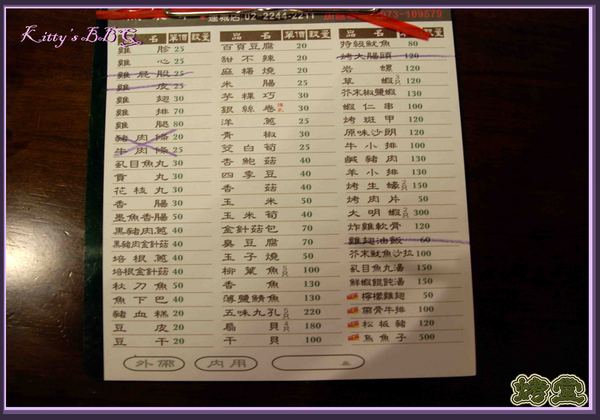 Kitty's BBQ
連城店:02-2244-2211
品 名 單價 數量
雞 胗 25
雞 心 25
雞 屁 股 25
雞 皮 25
雞 翅 30
雞 腿 80
豬 肉 條
牛 肉 條 25
虱目魚丸 30
貢 丸 30
花 枝 丸 30
香 腸 30
墨魚香腸 50
黑豬肉蔥 40
黑豬肉金針菇 40
培 根 蔥 40
培根金針菇 40
秋 刀 魚 50
魚 下 巴 40
豬 血 糕 20
豆 皮 20
豆 干 20
品 名 單價 數量
百頁豆腐 20
甜 不 辣 20
麻 糬 燒 20
米 腸 25
芋 粿 巧 30
銀 絲 卷 30
洋 蔥 25
青 椒 30
茭 白 筍 25
杏 鮑 菇 50
四 季 豆 40
香 菇 40
玉 米 50
玉 米 筍 40
金針菇包 70
臭 豆 腐 40
玉 子 燒 50
柳 葉 魚 5只 100
香 魚 130
薄鹽鯖魚 130
五味九孔 5只 220
扇 貝 4只 180
干 貝 100
品 名 單價 數量
特級魷魚 80
烤大腸頭 120
岩 螺 120
草 蝦 3只 120
芥末椒鹽蝦 130
蝦 仁 串 100
烤 斑 甲 120
原味沙朗 120
牛 小 排 100
鹹 豬 肉 130
羊 小 排 130
烤 生 蠔 2只 150
烤 肉 片 50
大 明 蝦 2只 300
炸雞軟骨 120
雞翅油飯 60
芥末魷魚沙拉 100
虱目魚丸湯 150
鮮蝦餛飩湯 150
檸檬雞翅 50
帶骨牛排 100
松 板 豬 120
烏 魚 子 500
外帶 內用
烤堂